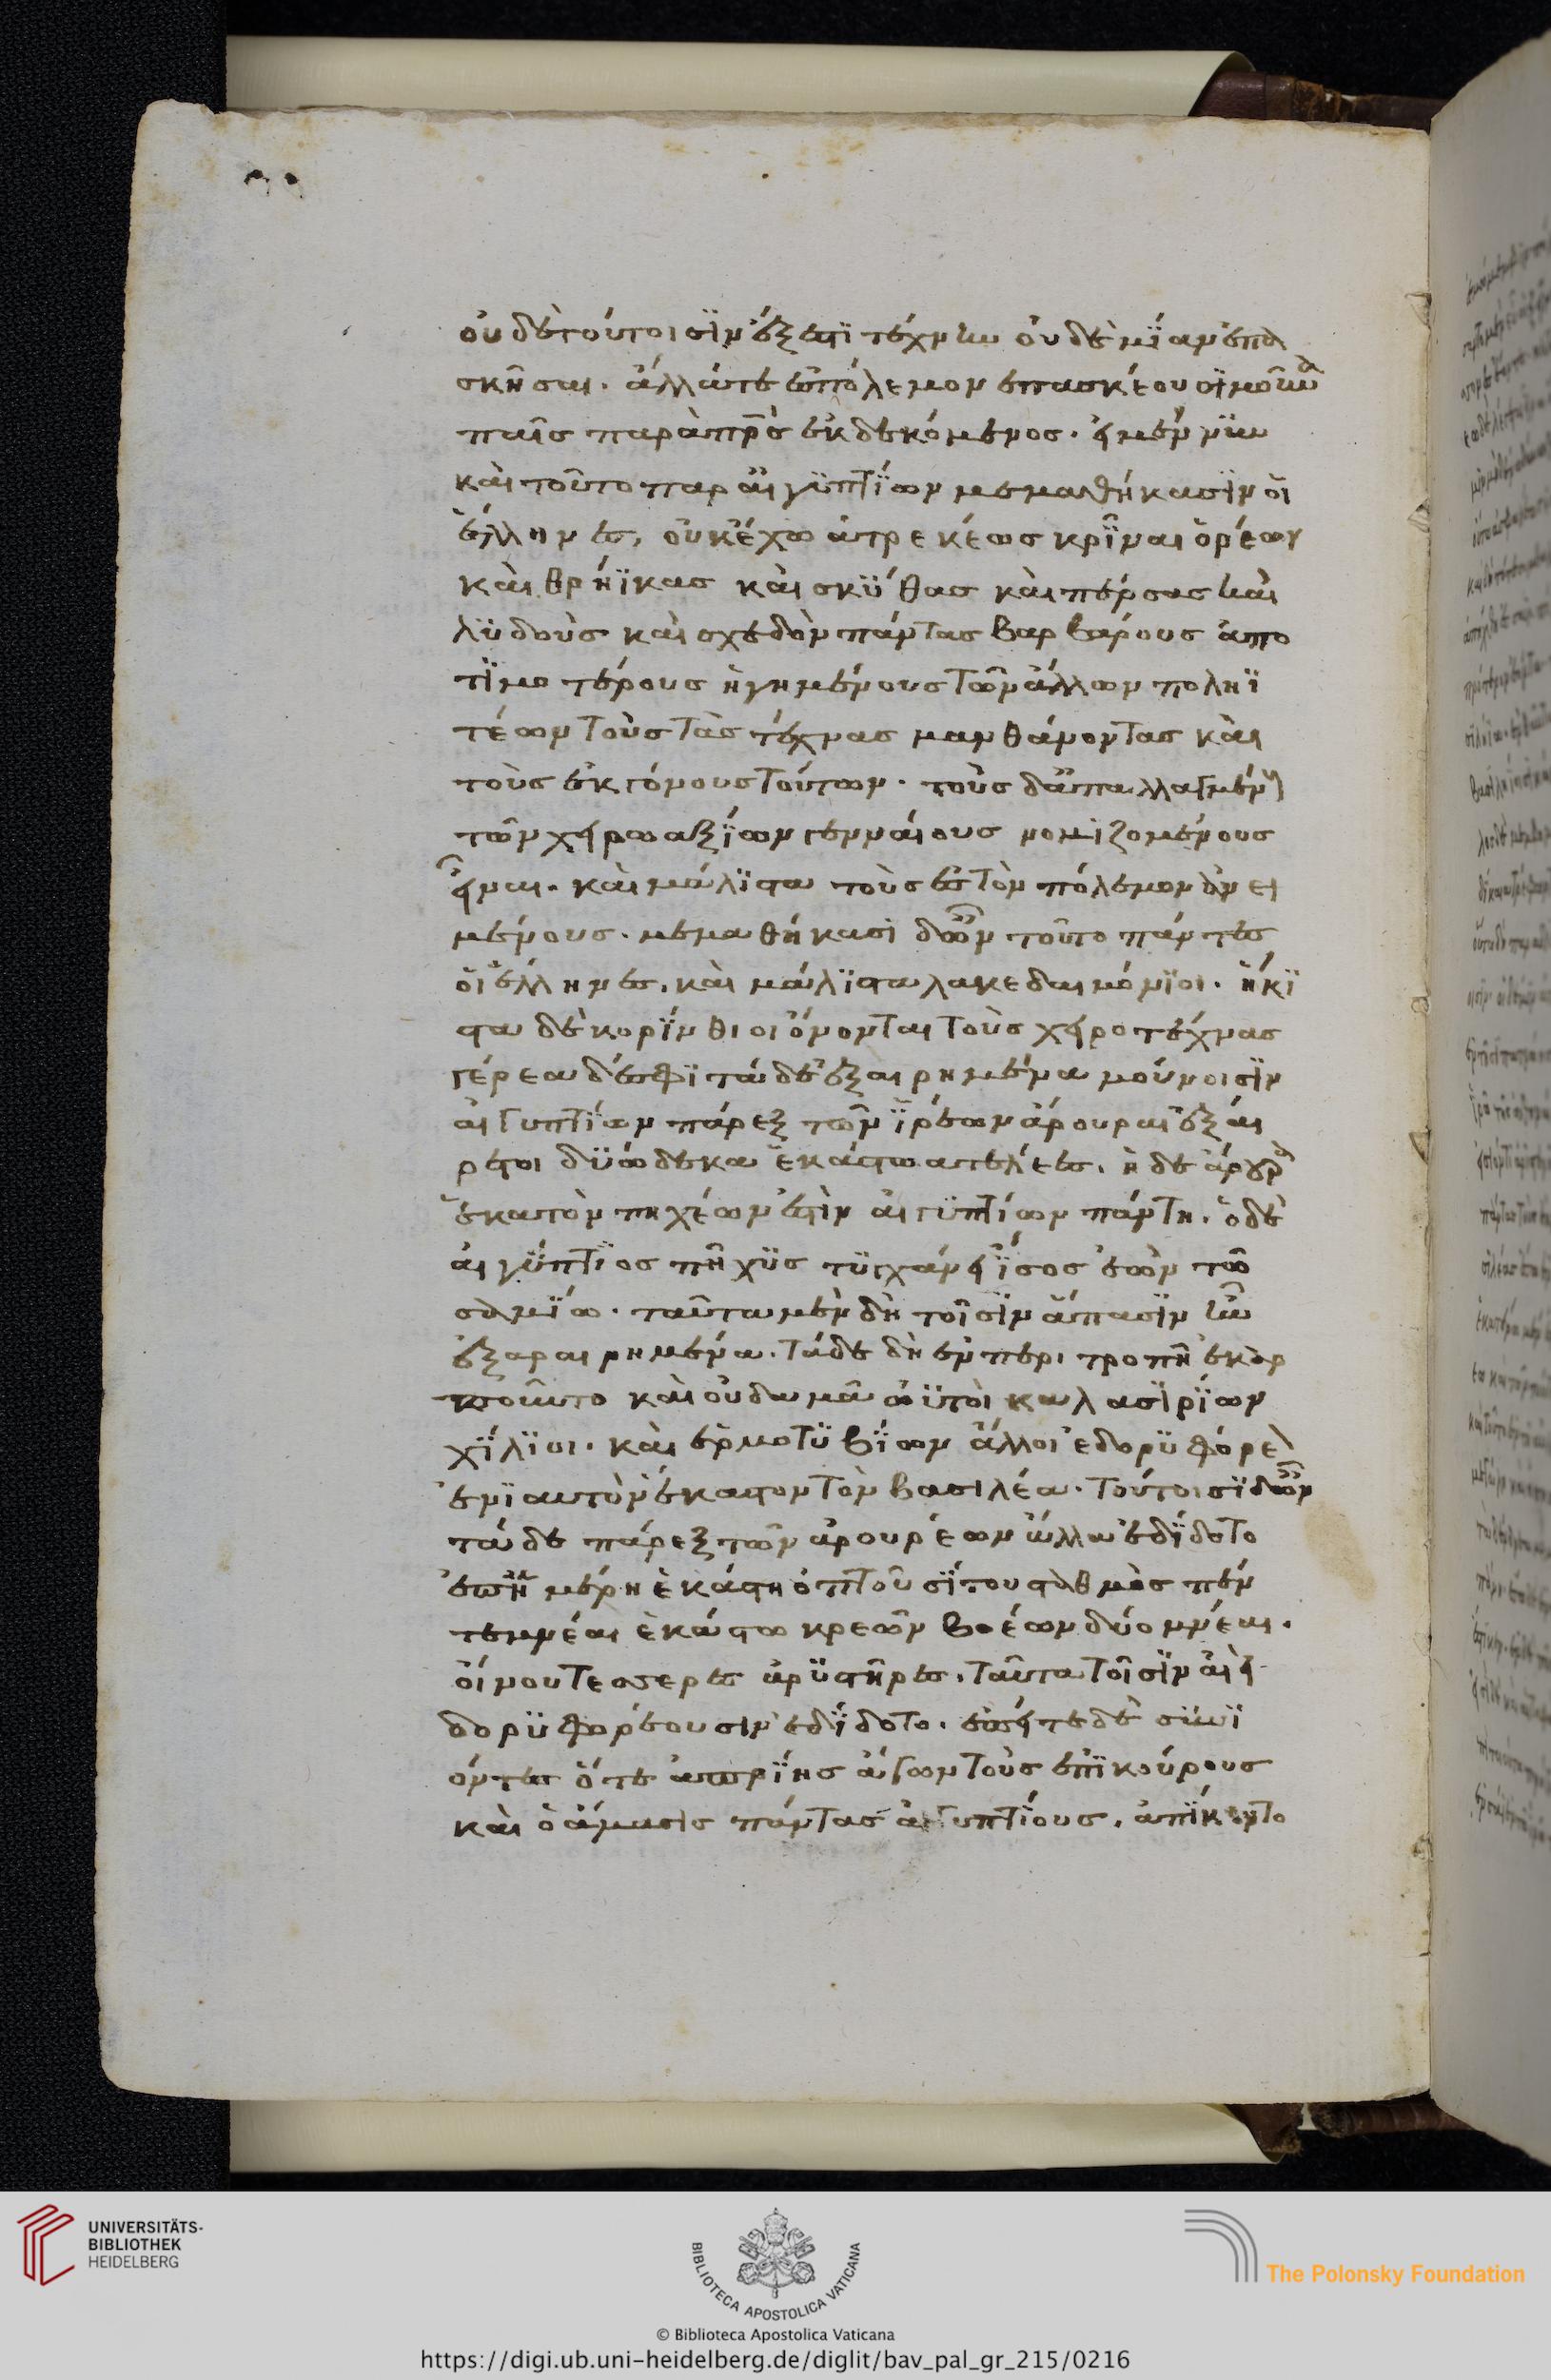 οὐδὲ τούτοισϊν ἔξεστϊ τέχνην οὐδὲ μΐαν ἐπα
σκῆσαι. ἀλλὰ τὰ ἐς πόλεμον ἐπασκέουσϊ μοῦνα
παῖς παρὰ πρ̅ς ἐκδεκόμενος. εἰ μέν νϋν
καὶ τοῦτο παρ αἰγϋπτΐων μεμαθήκασϊν οἱ
ἕλληνες, οὐκ ἔχω ἀτρεκέως κρῖναι ὁρέων
καὶ θρήϊκας καὶ σκΰθας καὶ πέρσας καὶ
λϋδοὺς καὶ σχεδὸν πάντας βαρβάρους ἀπο
τϊμοτέρους ἡγημένους τῶν ἄλλων πολϊη
τέων τοὺς τὰς τέχνας μανθάνοντας καὶ
τοὺς ἐκγόνους τούτων. τοὺς δ' ἀπαλλαγμένους
τῶν χειρωαξΐων γενναίους νομιζομένους
εἶναι. καὶ μάλϊστα τοὺς ἐς τὸν πόλεμον ἀνει
μένους. μεμαθήκασι δ' ὦν τοῦτο πάντες
οἱ ἕλληνες. καὶ μάλϊστα λακεδαιμόνϊοι. ἥκϊ
στα δὲ κορΐνθιοι ὄνονται τοὺς χειροτέχνας
γέρεα δέ σφϊ τάδε ἐξαιρημένα μούνοισϊν
αἰγυπτΐων πάρεξ τῶν ϊρέων ἄρουραι ἐξαί
ρετοι δϋώδεκα ἑκάστω ἀτελέες. ἡ δὲ ἄρουρα
ἑκατὸν πηχέων ἐστὶν αἰγϋπτίων πάντη. ὁ δὲ
αἰγΰπτϊος πῆχϋς τϋγχάνει ἴσος ἐὼν τῶ
σαμΐω. ταῦτα μὲν δὴ τοῖσϊν ἅπασϊν ἦν
ἐξαραιρημένα. τάδε δὴ ἐν περιτροπῆ ἐκαρ
ποῦντο καὶ οὐδαμᾶ ωϋτοὶ καλασϊρΐων
χΐλϊοι. καὶ ἑρμοτϋβΐων ἄλλοι ἐδορϋφόρεον
ἐνϊαυτὸν ἕκαστον τὸν βασιλέα. τούτοισϊ δ' ὦν
τάδε πάρεξ τῶν ἀρουρέων ἄλλα ἐδΐδοτο
ἐπ' ἡμέρη ἑκάστη ὀπτοῦ σΐτου σταθμὸς πέν
τε μνέαι ἑκάστω κρεῶν βοέων δύο μνέαι.
οἴνου τέσσερες ἀρϋστῆρες. ταῦτα τοῖσϊν αἰεὶ
δορϋφορέουσιν ἐδΐδοτο. ἐπείτε δὲ συνϊ
όντες ὅ τε ἀπρΐης ἄγων τοὺς ἐπϊκούρους
καὶ ὁ ἄμασις πάντας αἰγυπτίους. ἀπΐκοντο
UNIVERSITÄTS-
BIBLIOTHEK
HEIDELBERG
BIBLIOTECA APOSTOLICA VATICANA
The Polonsky Foundation
© Biblioteca Apostolica Vaticana
https://digi.ub.uni-heidelberg.de/diglit/bav_pal_gr_215/0216